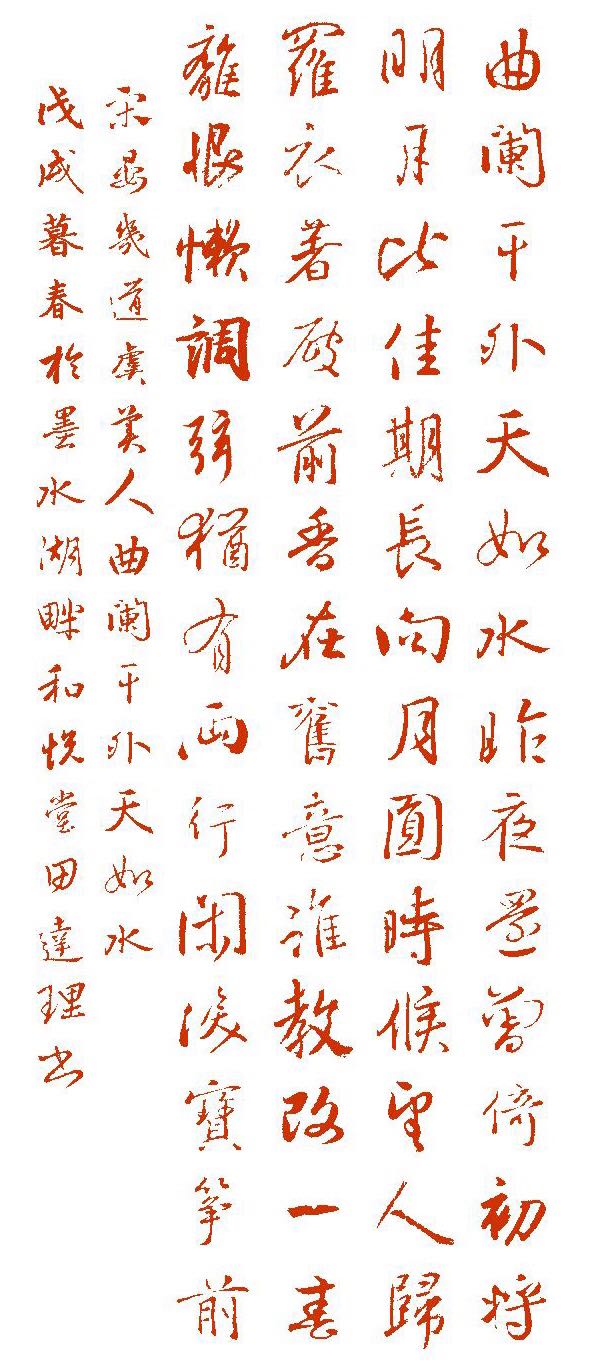 曲闌干外天如水昨夜還曾倚初將
明月比佳期長向月圓時候望人歸
羅衣著破前香在舊意誰教改一春
離恨懶調弦猶有兩行閑淚寶箏前
宋晏幾道虞美人曲闌干外天如水
戊戌暮春於墨水湖畔和悅堂田達理書